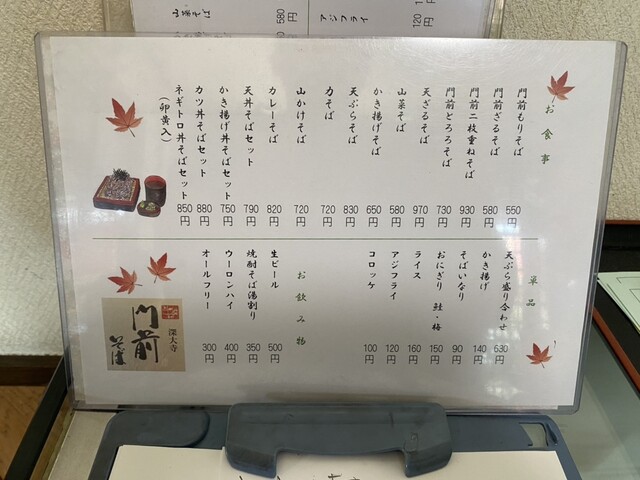 山菜そば 580円
アジフライ 120円
お食事
門前もりそば 550円
門前ざるそば 580円
門前二枚重ねそば 930円
門前とろろそば 730円
天ざるそば 970円
山菜そば 580円
かき揚げそば 650円
天ぷらそば 830円
力そば 720円
山かけそば 720円
カレーそば 820円
天丼そばセット 790円
かき揚げ丼そばセット 750円
カツ丼そばセット 880円
ネギトロ丼そばセット 850円
(卵黄入)
単品
天ぷら盛り合わせ 630円
かき揚げ 140円
そばいなり 90円
おにぎり 鮭・梅 150円
ライス 160円
アジフライ 120円
コロッケ 100円
お飲み物
生ビール 500円
焼酎そば湯割り 350円
ウーロンハイ 400円
オールフリー 300円
深大寺
門前
そば